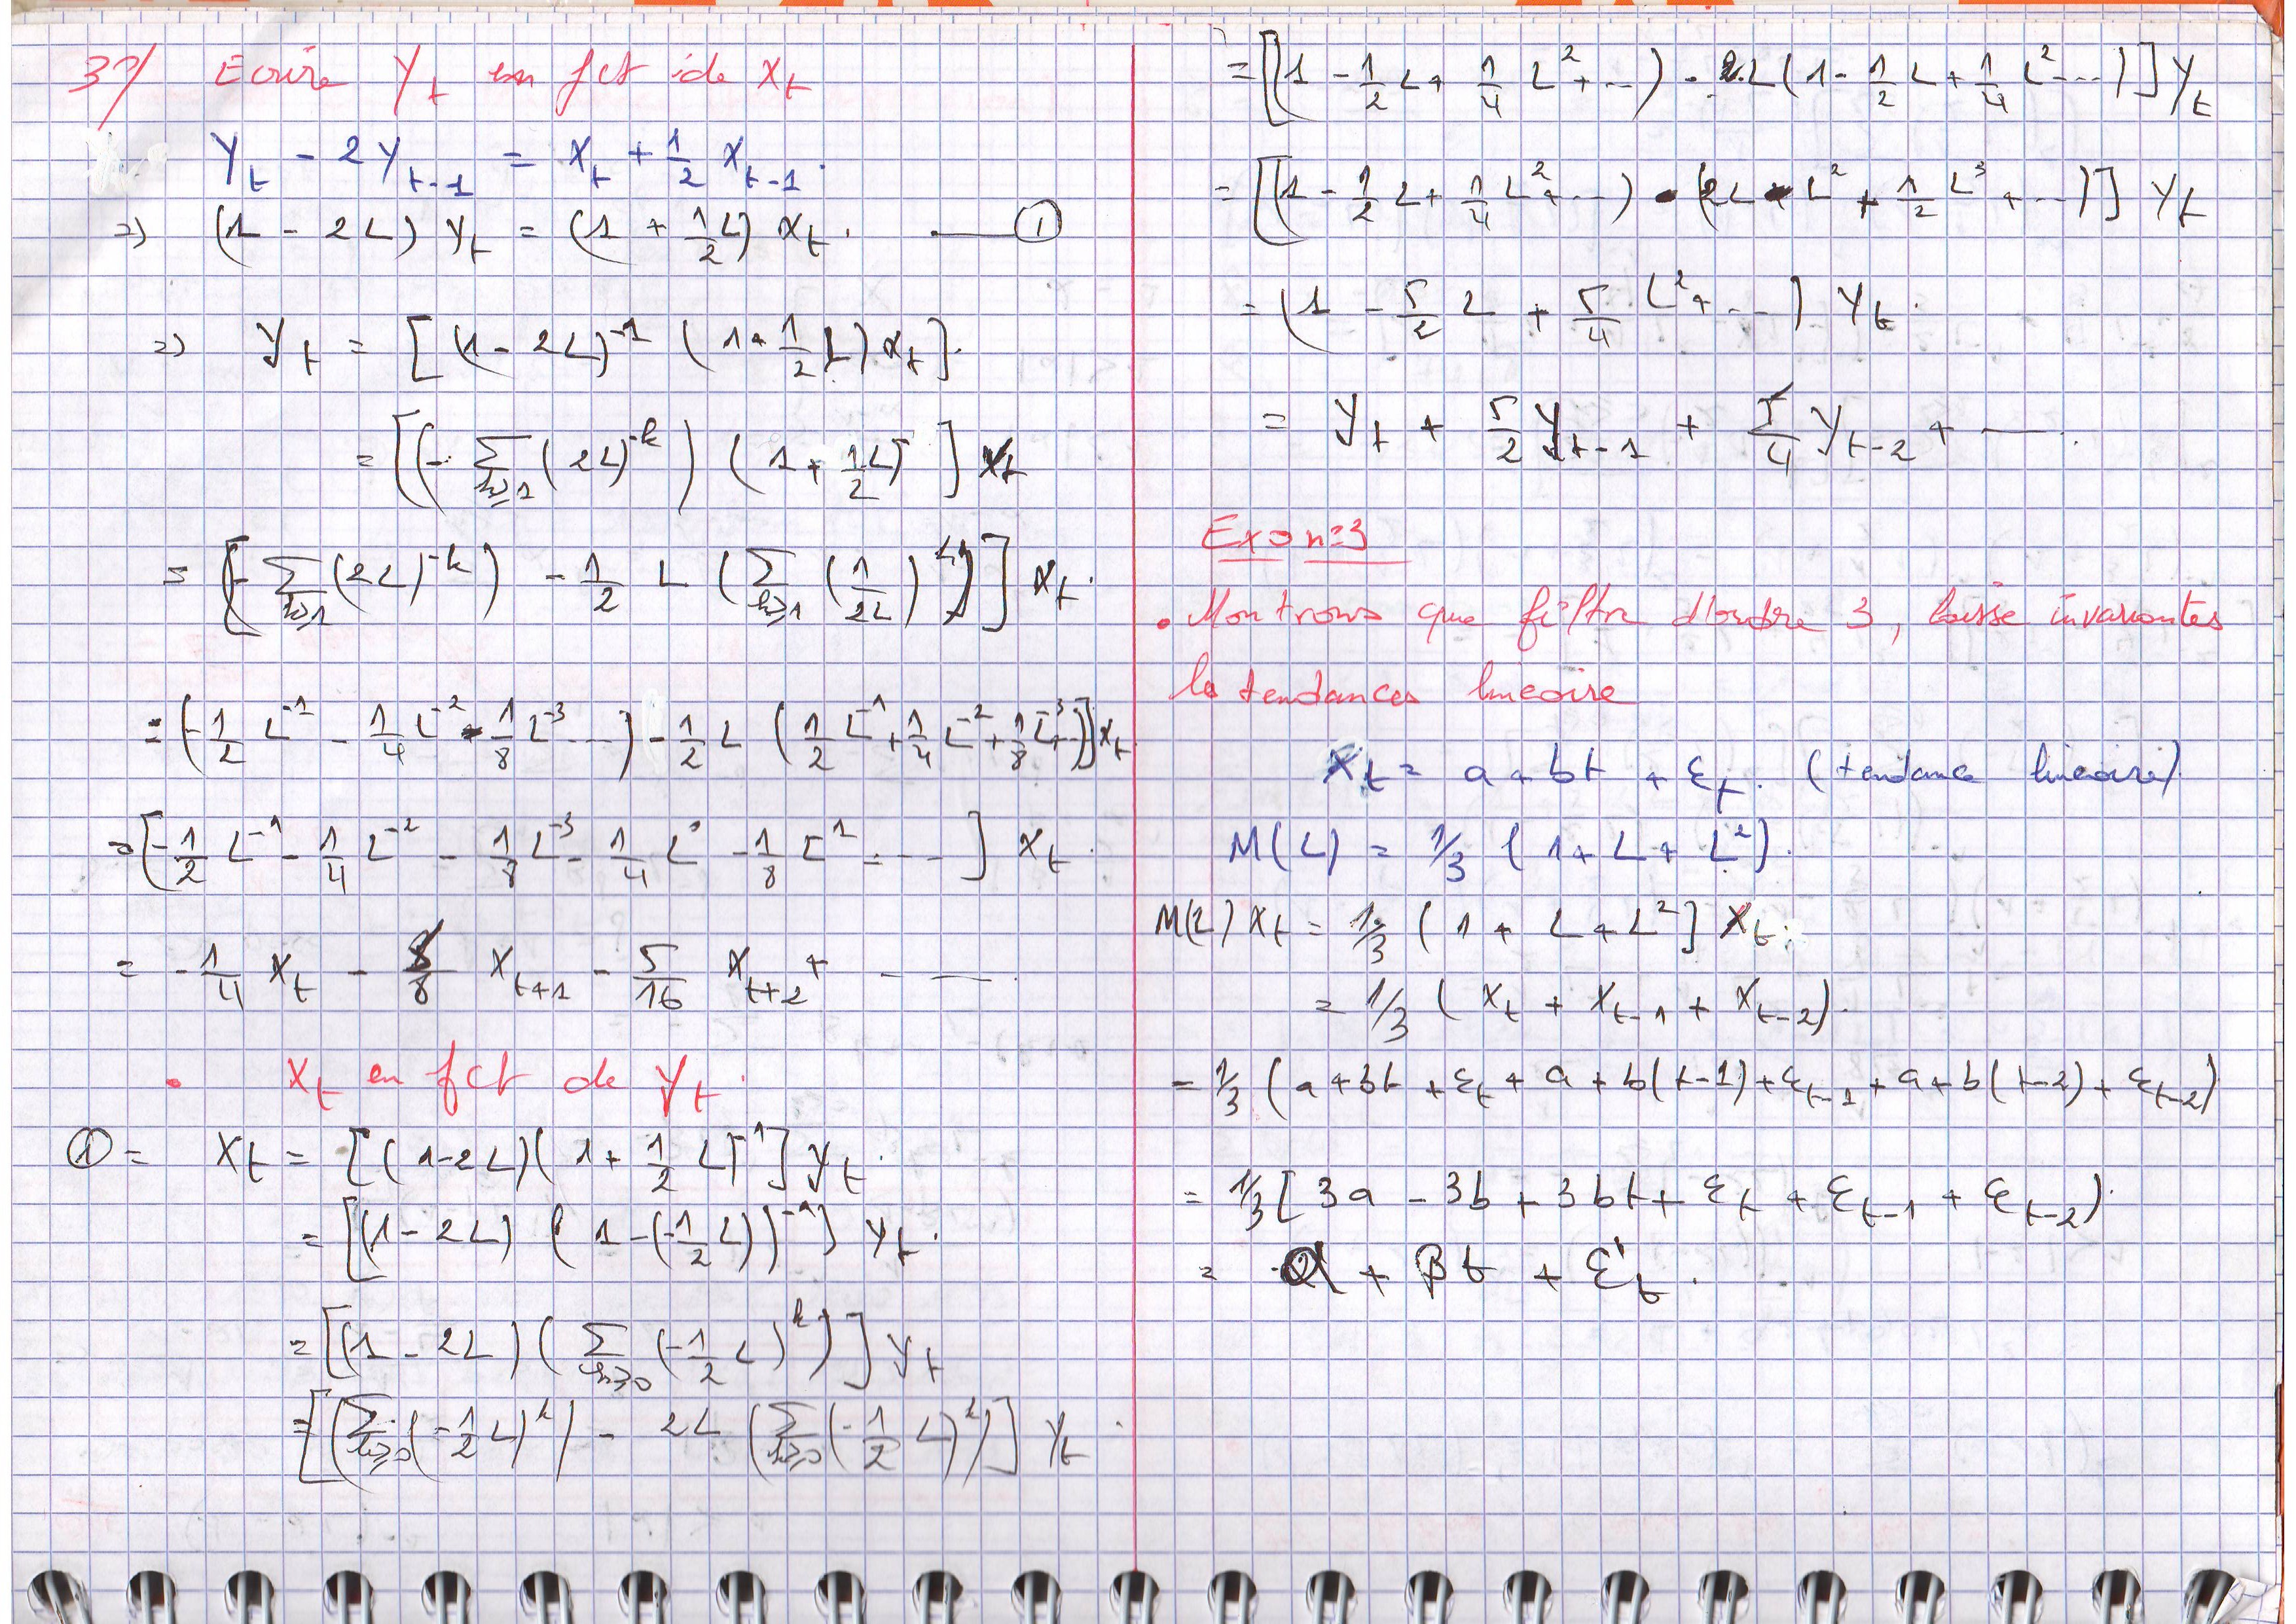 3°/ Ecrire Y_t en fct de X_t
Y_t - 2Y_{t-1} = X_t + 1/2 X_{t-1}.
=> (1 - 2L) Y_t = (1 + 1/2 L) X_t. —— ①
=> Y_t = [(1 - 2L)^{-1} (1 + 1/2 L) X_t].
= [(- Σ_{k≥1} (2L)^{-k}) (1 + 1/2 L)] X_t
= [(- Σ_{k≥1} (2L)^{-k}) - 1/2 L (Σ_{k≥1} (1/2L)^k)] X_t.
= (-1/2 L^{-1} - 1/4 L^{-2} - 1/8 L^{-3} ...) - 1/2 L (1/2 L^{-1} + 1/4 L^{-2} + 1/8 L^{-3} + ..)] X_t
= [-1/2 L^{-1} - 1/4 L^{-2} - 1/8 L^{-3} - 1/4 L° - 1/8 L^{-1} - ...] X_t.
= -1/4 X_t - 5/8 X_{t+1} - 5/16 X_{t+2} + ——
• X_t en fct de Y_t.
① = X_t = [(1-2L)(1 + 1/2 L)^{-1}] Y_t.
= [(1 - 2L) (1 - (-1/2 L))^{-1}] Y_t.
= [(1 - 2L) (Σ_{k≥0} (-1/2 L)^k)] Y_t
= [(Σ_{k≥0} (-1/2 L)^k) - 2L (Σ_{k≥0} (-1/2 L)^k)] Y_t.
= [(1 - 1/2 L + 1/4 L^2 + ...) - 2L (1 - 1/2 L + 1/4 L^2 ...)] Y_t
= [(1 - 1/2 L + 1/4 L^2 + ...) - (2L - L^2 + 1/2 L^3 + ...)] Y_t
= (1 - 5/2 L + 5/4 L^2 + ...) Y_t.
= Y_t + 5/2 Y_{t-1} + 5/4 Y_{t-2} + ——.
Exo n=3
• Montrons que filtre d'ordre 3, laisse invariantes
les tendances lineaire
X_t = a + bt + ε_t. (tendance lineaire)
M(L) = 1/3 (1 + L + L^2).
M(L) X_t = 1/3 (1 + L + L^2) X_t.
= 1/3 (X_t + X_{t-1} + X_{t-2}).
= 1/3 (a + bt + ε_t + a + b(t-1) + ε_{t-1} + a + b(t-2) + ε_{t-2})
= 1/3 [3a - 3b + 3bt + ε_t + ε_{t-1} + ε_{t-2}).
= α + βt + ε'_t.